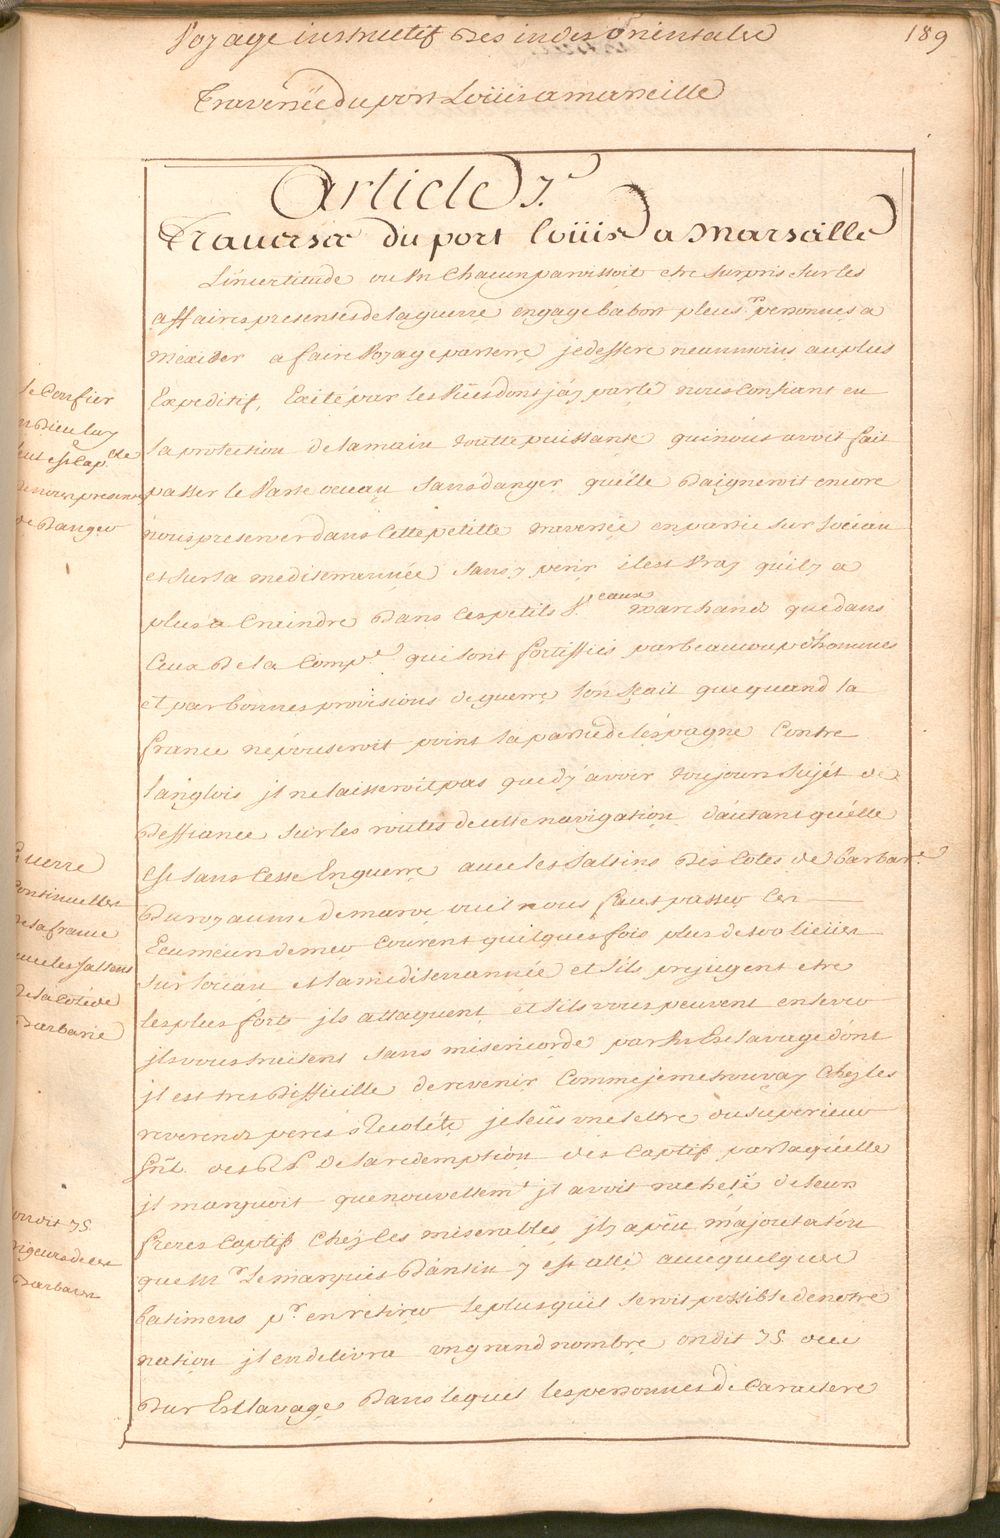 Voyage instructif des indes orientales
189
Traversée du port Loüis a marseille
Article 7.e
Traversée du port loüis a Marseille
L'incertitude ou l'on Chacun paroissoit etre surpris sur les
affaires presentes de la guerre engage babord plusrs personnes a
m'exiter a faire Voyage par terre je deffere neanmoins au plus
Expeditif, Exité par les Vües dont j'ay parlé nous Confiant en
la protection de la main toutte puissante qui nous avoit fait
passer le Vaste oceau sans danger qu'elle Daigneroit encore
nous preserver dans Cette petitte traversée en partie sur l'ocean
et sur la mediterrannée sans y perir il est Vray qu'il y a
plus a Craindre Dans les petits Veaux marchands que dans
Ceux de la Compe qui sont fortiffiés par beaucoup d'hommes
et par bonnes provisions de guerre l'on sçait que quand la
france n'épouseroit point la partie de l'éspagne Contre
l'anglois jl ne laisseroit pas que d'y avoir toujours sujét de
Deffiance sur les routes de cette navigation d'autant qu'elle
Est sans Cesse En guerre avec les saltins des Cotes de barbarie
Du royaume de maroc ou il nous faut passer Ces
Ecumeurs de mer Courent quelques fois plus de 100 lieües
sur l'ocean et la mediterrannée et s'ils prejugent etre
les plus forts jls attaquent et s'ils vous peuvent enlever
jls vous traitent sans misericorde par Un Esclavage dont
jl est tres Difficille de revenir Comme je me trouvay Chez les
reverends peres Recoléts je leüs une lettre du superieur
gñl des R P. de la redemption des Captifs par laquélle
jl marquoit que nouvellemt jl avoit racheté de leurs
freres Captifs Chéz Ces miserables, jl y a peu m'ajouta t'on
que Mr le marquis D'antin y est allé avec quelques
batimens pr en retirer le plus qu'il seroit possible de notre
nation jl en delivra un grand nombre on dit 75 de ce
Dur Esclavage Dans lequel les personnes de Caractere
se Confier
en Dieu luy
seul est Cap.ble
de nous preserver
de Danger
Guerre
Continuelle
de la france
avec les saltins
de la Cote de
Barbarie
on dit 75
rigeurs de ces
Barbares